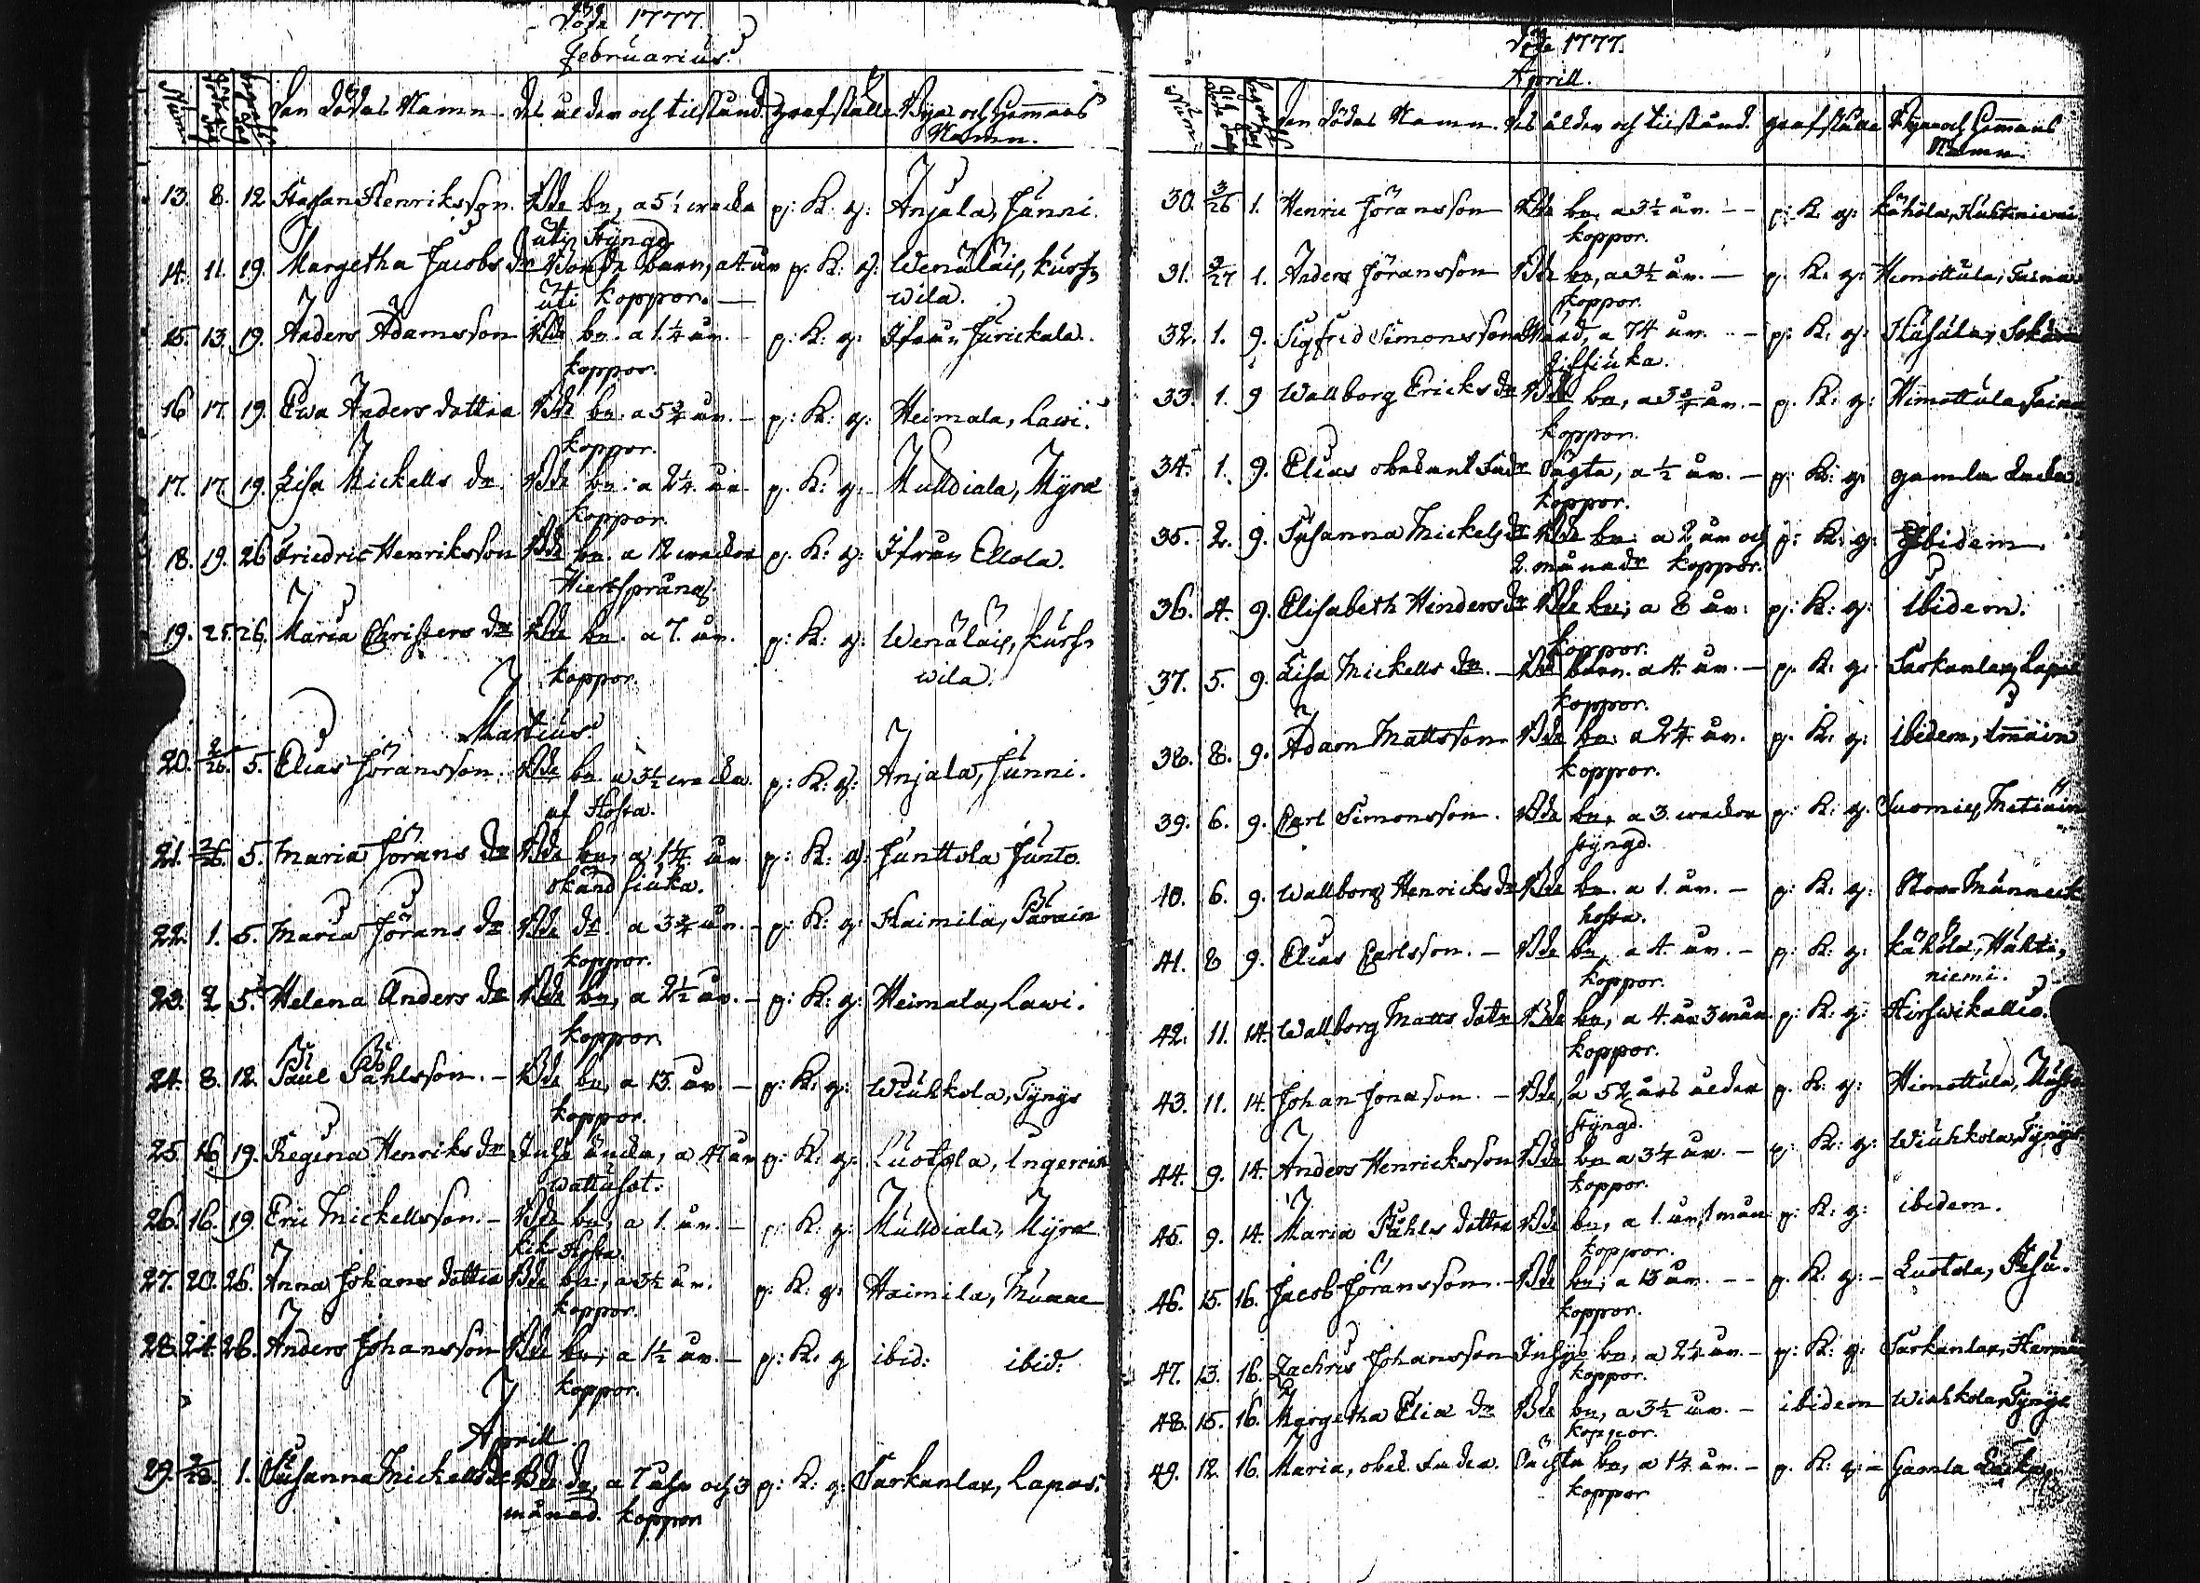 Döde 1777.
Februarius.
Num
Den Dödas Namn. des ålder och tilstånd. Grafställe Byas och Hemans
Namn.
13. 8. 12 Staffan Henriksson. Bde bn, a 5½ wecka p: K: g: Anjala, Junni.
uti styngd
14. 11. 19. Margetha Jacobs dr Bonde barn, a 4 år p: K: g: Wenäläis, kurss
uti koppor. wila.
15. 13. 19. Anders Adamsson Bde bn. a 1¼ år. p: K: g: Ifrån Jurickala.
koppor.
16 17. 19. Ewa Anders dotter Bde bn. a 5¾ år. p: K: g: Heimala, Lawi.
koppor.
17. 17. 19. Lisa Mickells dr. Bde bn. a 2¼ år p. K: g: Mulldiala, Myra
koppor.
18. 19. 26 Friedric Henriksson Bde bn. a 12 weckor p: K: g: Ifrån Ellola.
Hiertsprång.
19. 25. 26. Maria Christers dr Bde bn. a 7. år. p: K: g: Wenäläis, kurss
koppor. wila.
Martius
20. 2/26. 5. Elias Jöransson. Bde bn. a 3½ wecka p: K: g: Anjala, Junni.
af Hosta.
21. 2/26. 5. Maria Jörans dr Bde bn, a 1¼ år p: K: g: Junttola Junto.
okänd siuka.
22. 1. 5. Maria Jörans dr Bde dr. a 3¾ år. p: K: g: Haimila,
koppor.
23. 2 5. Helena Anders dr Bde bn, a 2½ år. p: K: g: Heimala, Lawi.
koppor.
24. 8. 12. Påul Påhlsson. Bde bn, a 13. år. p: K: g: Wiuhkola, Tynys
koppor.
25. 16 19. Regina Henriks dr Inhs änka, a 47 år p: K: g: Luotola,
wattusot.
26. 16. 19 Eric Mickellsson. Bde bn, a 1. år. p: K: g: Mulldiala, Myra
kik Hosta.
27. 20. 26. Anna Johans dotter Bde bn, a 3½ år. p: K: g: Haimila,
koppor.
28. 24. 26. Anders Johansson Bde bn, a 1½ år. p: K: g ibid: ibid:
koppor.
Aprill
29. 1. Susanna Mickells dr Bde dr, a 7 åhr och 3 p: K: g: Sarkanlax, Lapas.
månad. koppor
Döde 1777.
Aprill.
Num. Den Dödas Namn. des ålder och tilstånd. Grafställe Byas och Hemans
Namn.
30. 3/26 1. Henric Jöransson Bde bn. a 3½ år. p: K: g: kähölä, Huhtiniemi
koppor.
31. 3/27 1. Anders Jöransson Bde bn, a 3½ år. p: K: g: Himottula,
koppor.
32. 1. 9. Sigfrid Simonsson a 74 år. p: K: g:
33. 1. 9 Wallborg Ericks dr Bde bn, a 3¾ år. p: K: g: Himottula,
koppor.
34. 1. 9. Elias obekant fader a ½ år. p: K: g: gamla
koppor.
35. 2. 9. Susanna Mickels dr Bde bn. a 2 år och p: K: g: Ibidem.
2. månadr koppor.
36. 4. 9. Elisabeth Hinders dr Bde bn, a 8 år. p: K: g: ibidem.
koppor.
37. 5. 9. Lisa Mickells dr. Bde barn. a 4. år. p. K: g: Sarkanlax, Lapas
koppor.
38. 8. 9. Adam Mattsson Bde bn. a 2¼ år. p. K: g: ibidem,
koppor.
39. 6. 9. Carl Simonsson. Bde bn. a 3. weckor p: K: g:
styngd.
40. 6. 9. Wallborg Henricks dr Bde bn. a 1. år. p: K: g: Stora
hosta.
41. 8 9. Elias Carlsson. Bde bn a 4. år. p: K: g: kähölä, Huhti,
koppor. niemi.
42. 11. 14. Wallborg Matts dotr Bde bn, a 4. år 3 mån. p: K: g: Hirswikallio.
koppor.
43. 11. 14. Johan Jonasson. Bde, a 52 års ålder p. K: g: Himottula,
styngd.
44. 9. 14. Anders Henricksson Bde bn a 3¼ år. p: K: g: Wiuhkola, Tynys
koppor.
45. 9. 14. Maria Påhls dotter Bde bn, a 1. år, 1 mån p: K: g: ibidem.
koppor.
46. 15. 16. Jacob Jöransson. Bde bn, a 13 år. p. K: g: Luotola,
koppor.
47. 13. 16. Zachris Johansson Inhys bn, a 2¼ år. p: K: g: Sarkanlax,
koppor.
48. 15. 16. Margetha Elia dr Bde bn, a 3½ år. ibidem Wiuhkola, Tynys
koppor.
49. 12. 16. Maria, obek. fader. bn, a 1¼ år. p. K: g: Gamla
koppor